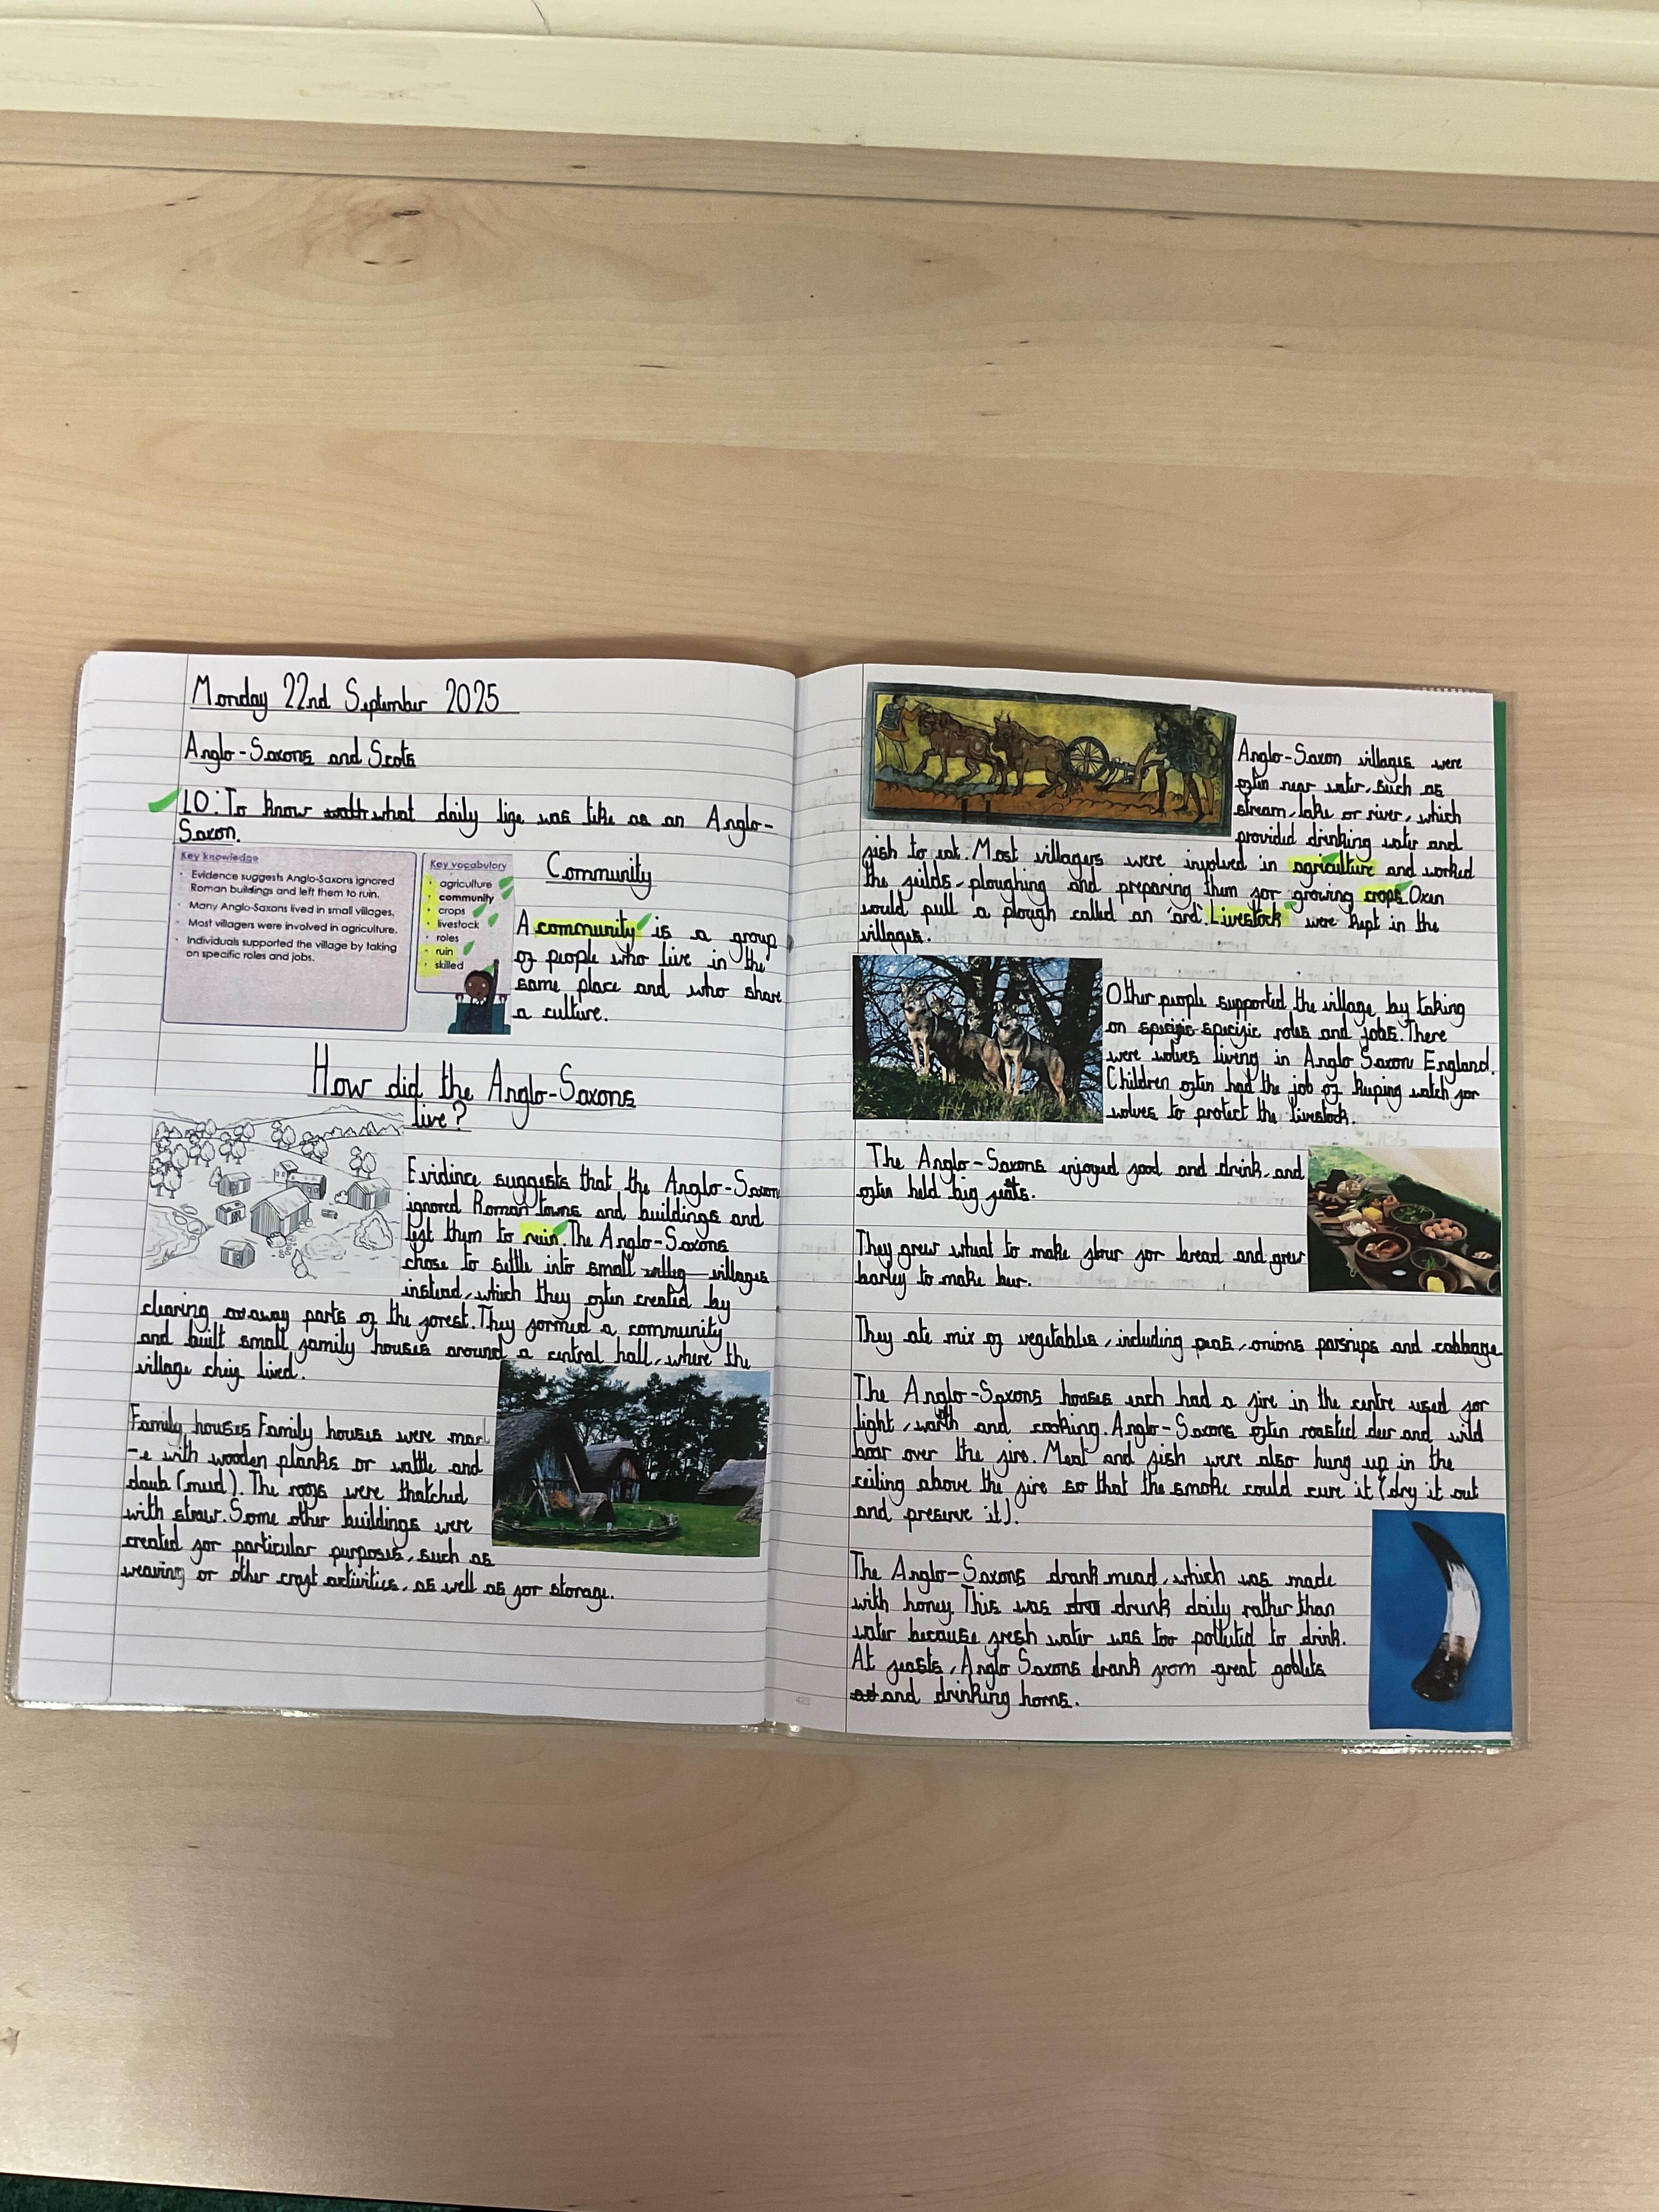 Monday 22nd September 2025
Anglo-Saxons and Scots
LO: To know what daily life was like as an Anglo-
Saxon.
Key knowledge
• Evidence suggests Anglo-Saxons ignored
Roman buildings and left them to ruin.
• Many Anglo-Saxons lived in small villages.
• Most villagers were involved in agriculture.
• Individuals supported the village by taking
on specific roles and jobs.
Key vocabulary
• agriculture
• community
• crops
• livestock
• roles
• ruin
• skilled
Community
A community is a group
of people who live in the
same place and who share
a culture.
How did the Anglo-Saxons
live?
Evidence suggests that the Anglo-Saxon
ignored Roman towns and buildings and
left them to ruin. The Anglo-Saxons
chose to settle into small villages
instead, which they often created by
clearing away parts of the forest. They formed a community
and built small family houses around a central hall, where the
village chief lived.
Family houses Family houses were mad
-e with wooden planks or wattle and
daub (mud). The roofs were thatched
with straw. Some other buildings were
created for particular purposes, such as
weaving or other craft activities, as well as for storage.
Anglo-Saxon villages were
often near water, such as
stream, lake or river, which
provided drinking water and
fish to eat. Most villagers were involved in agriculture and worked
the feilds, ploughing and preparing them for growing crops. Oxen
would pull a plough called an 'ard'. Livestock were kept in the
villages.
Other people supported the village by taking
on specific specific roles and jobs. There
were wolves living in Anglo Saxon England.
Children often had the job of keeping watch for
wolves to protect the livestock.
The Anglo-Saxons enjoyed food and drink, and
often held big feasts.
They grew wheat to make flour for bread and grew
barley to make beer.
They ate mix of vegetables, including peas, onions parsnips and cabbage
The Anglo-Saxons houses each had a fire in the centre used for
light, warmth and cooking. Anglo-Saxons often roasted deer and wild
boar over the fire. Meat and fish were also hung up in the
ceiling above the fire so that the smoke could cure it (dry it out
and preserve it).
The Anglo-Saxons drank mead, which was made
with honey. This was drunk daily rather than
water because fresh water was too polluted to drink.
At feasts, Anglo Saxons drank from great goblets
and drinking horns.